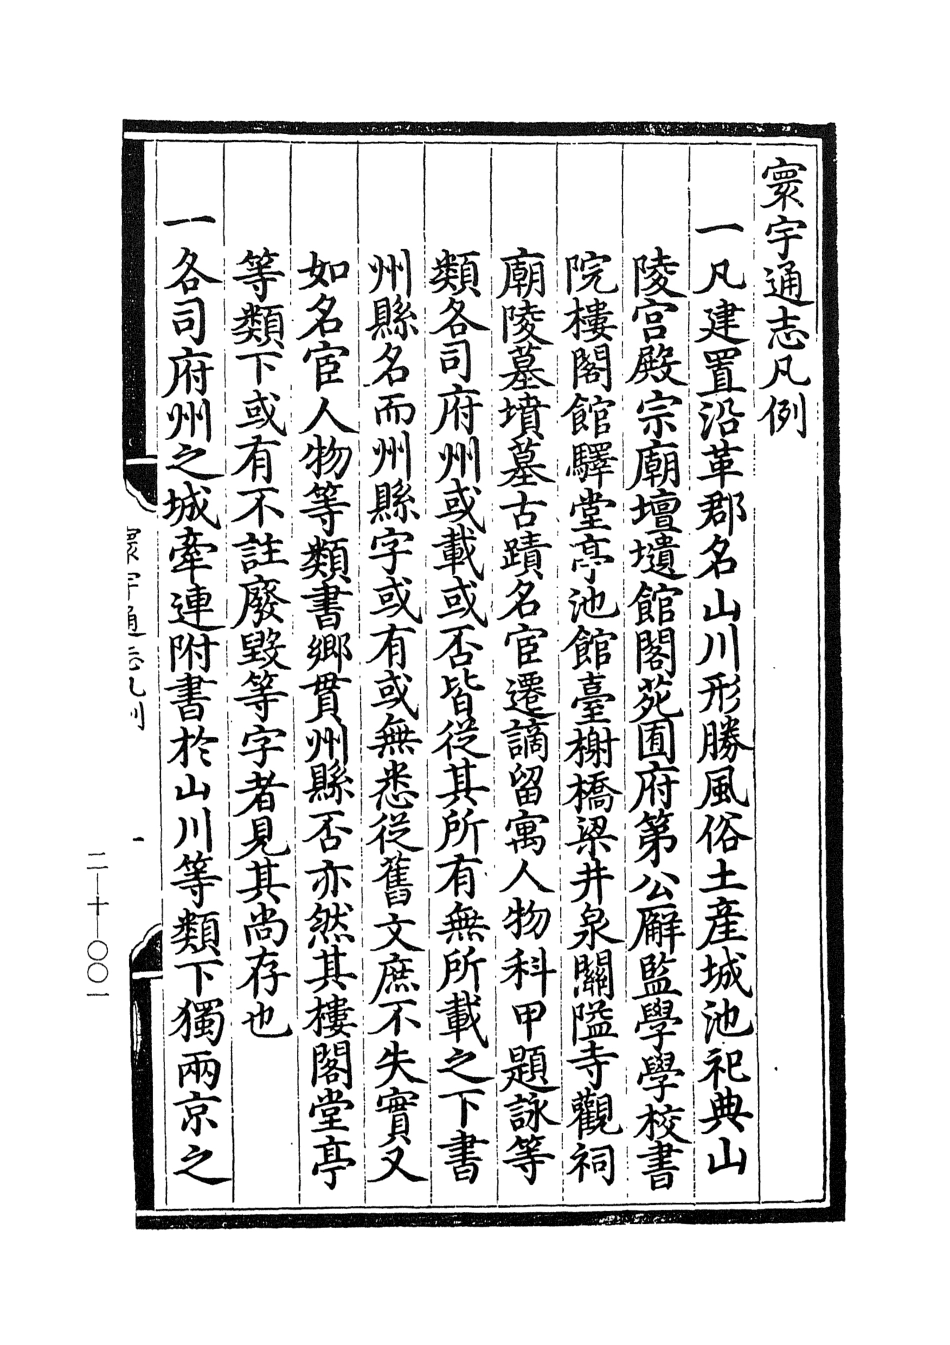 寰宇通志凡例
一凡建置沿革郡名山川形勝風俗土產城池祀典山
陵宮殿宗廟壇壝館閣苑囿府第公廨監學學校書
院樓閣館驛堂亭池館臺榭橋梁井泉關隘寺觀祠
廟陵墓墳墓古蹟名宦遷謫留寓人物科甲題詠等
類各司府州或載或否皆從其所有無所載之下書
州縣名而州縣字或有或無悉從舊文庶不失實又
如名宦人物等類書鄉貫州縣否亦然其樓閣堂亭
等類下或有不註廢毀等字者見其尚存也
一各司府州之城牽連附書於山川等類下獨兩京之
寰宇通志凡例
一
二—十—〇〇一